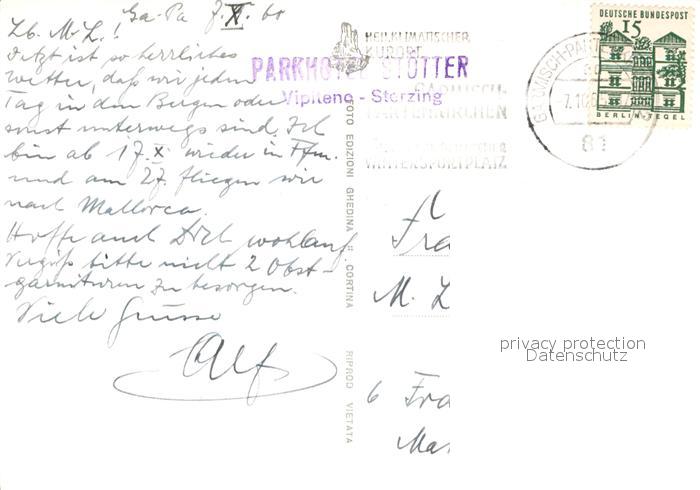 Ga-Pa 7.X. 60
Lb. M. L.!
Jetzt ist so herrliches
Wetter, daß wir jeden
Tag in den Bergen oder
sonst unterwegs sind. Ich
bin ab 17.X wieder in Ffm.
und am 27. fliegen wir
nach Mallorca.
Hoffe auch Dich wohlauf
Vergiß bitte nicht 2 Obst-
garnituren zu besorgen.
Viele Grüsse
Alf
HEILKLIMATISCHER
KURORT
PARKHOTEL STÖTTER
Vipiteno - Sterzing
GARMISCH-
PARTENKIRCHEN
WINTERSPORTPLATZ
FOTO EDIZIONI GHEDINA - CORTINA
RIPROD VIETATA
DEUTSCHE BUNDESPOST
15
BERLIN-TEGEL
GARMISCH-PART
-7.10
81
Fra
M. L
6 Fra
Ma
privacy protection
Datenschutz